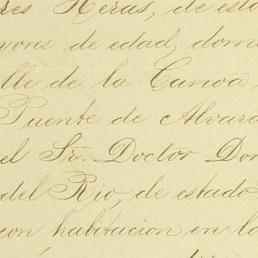 res Heras, de esta
yores de edad, domi
lle de la Canoa
Puente de Alvara
el Sr. Doctor Don
del Rio, de estado
con habitacion en la